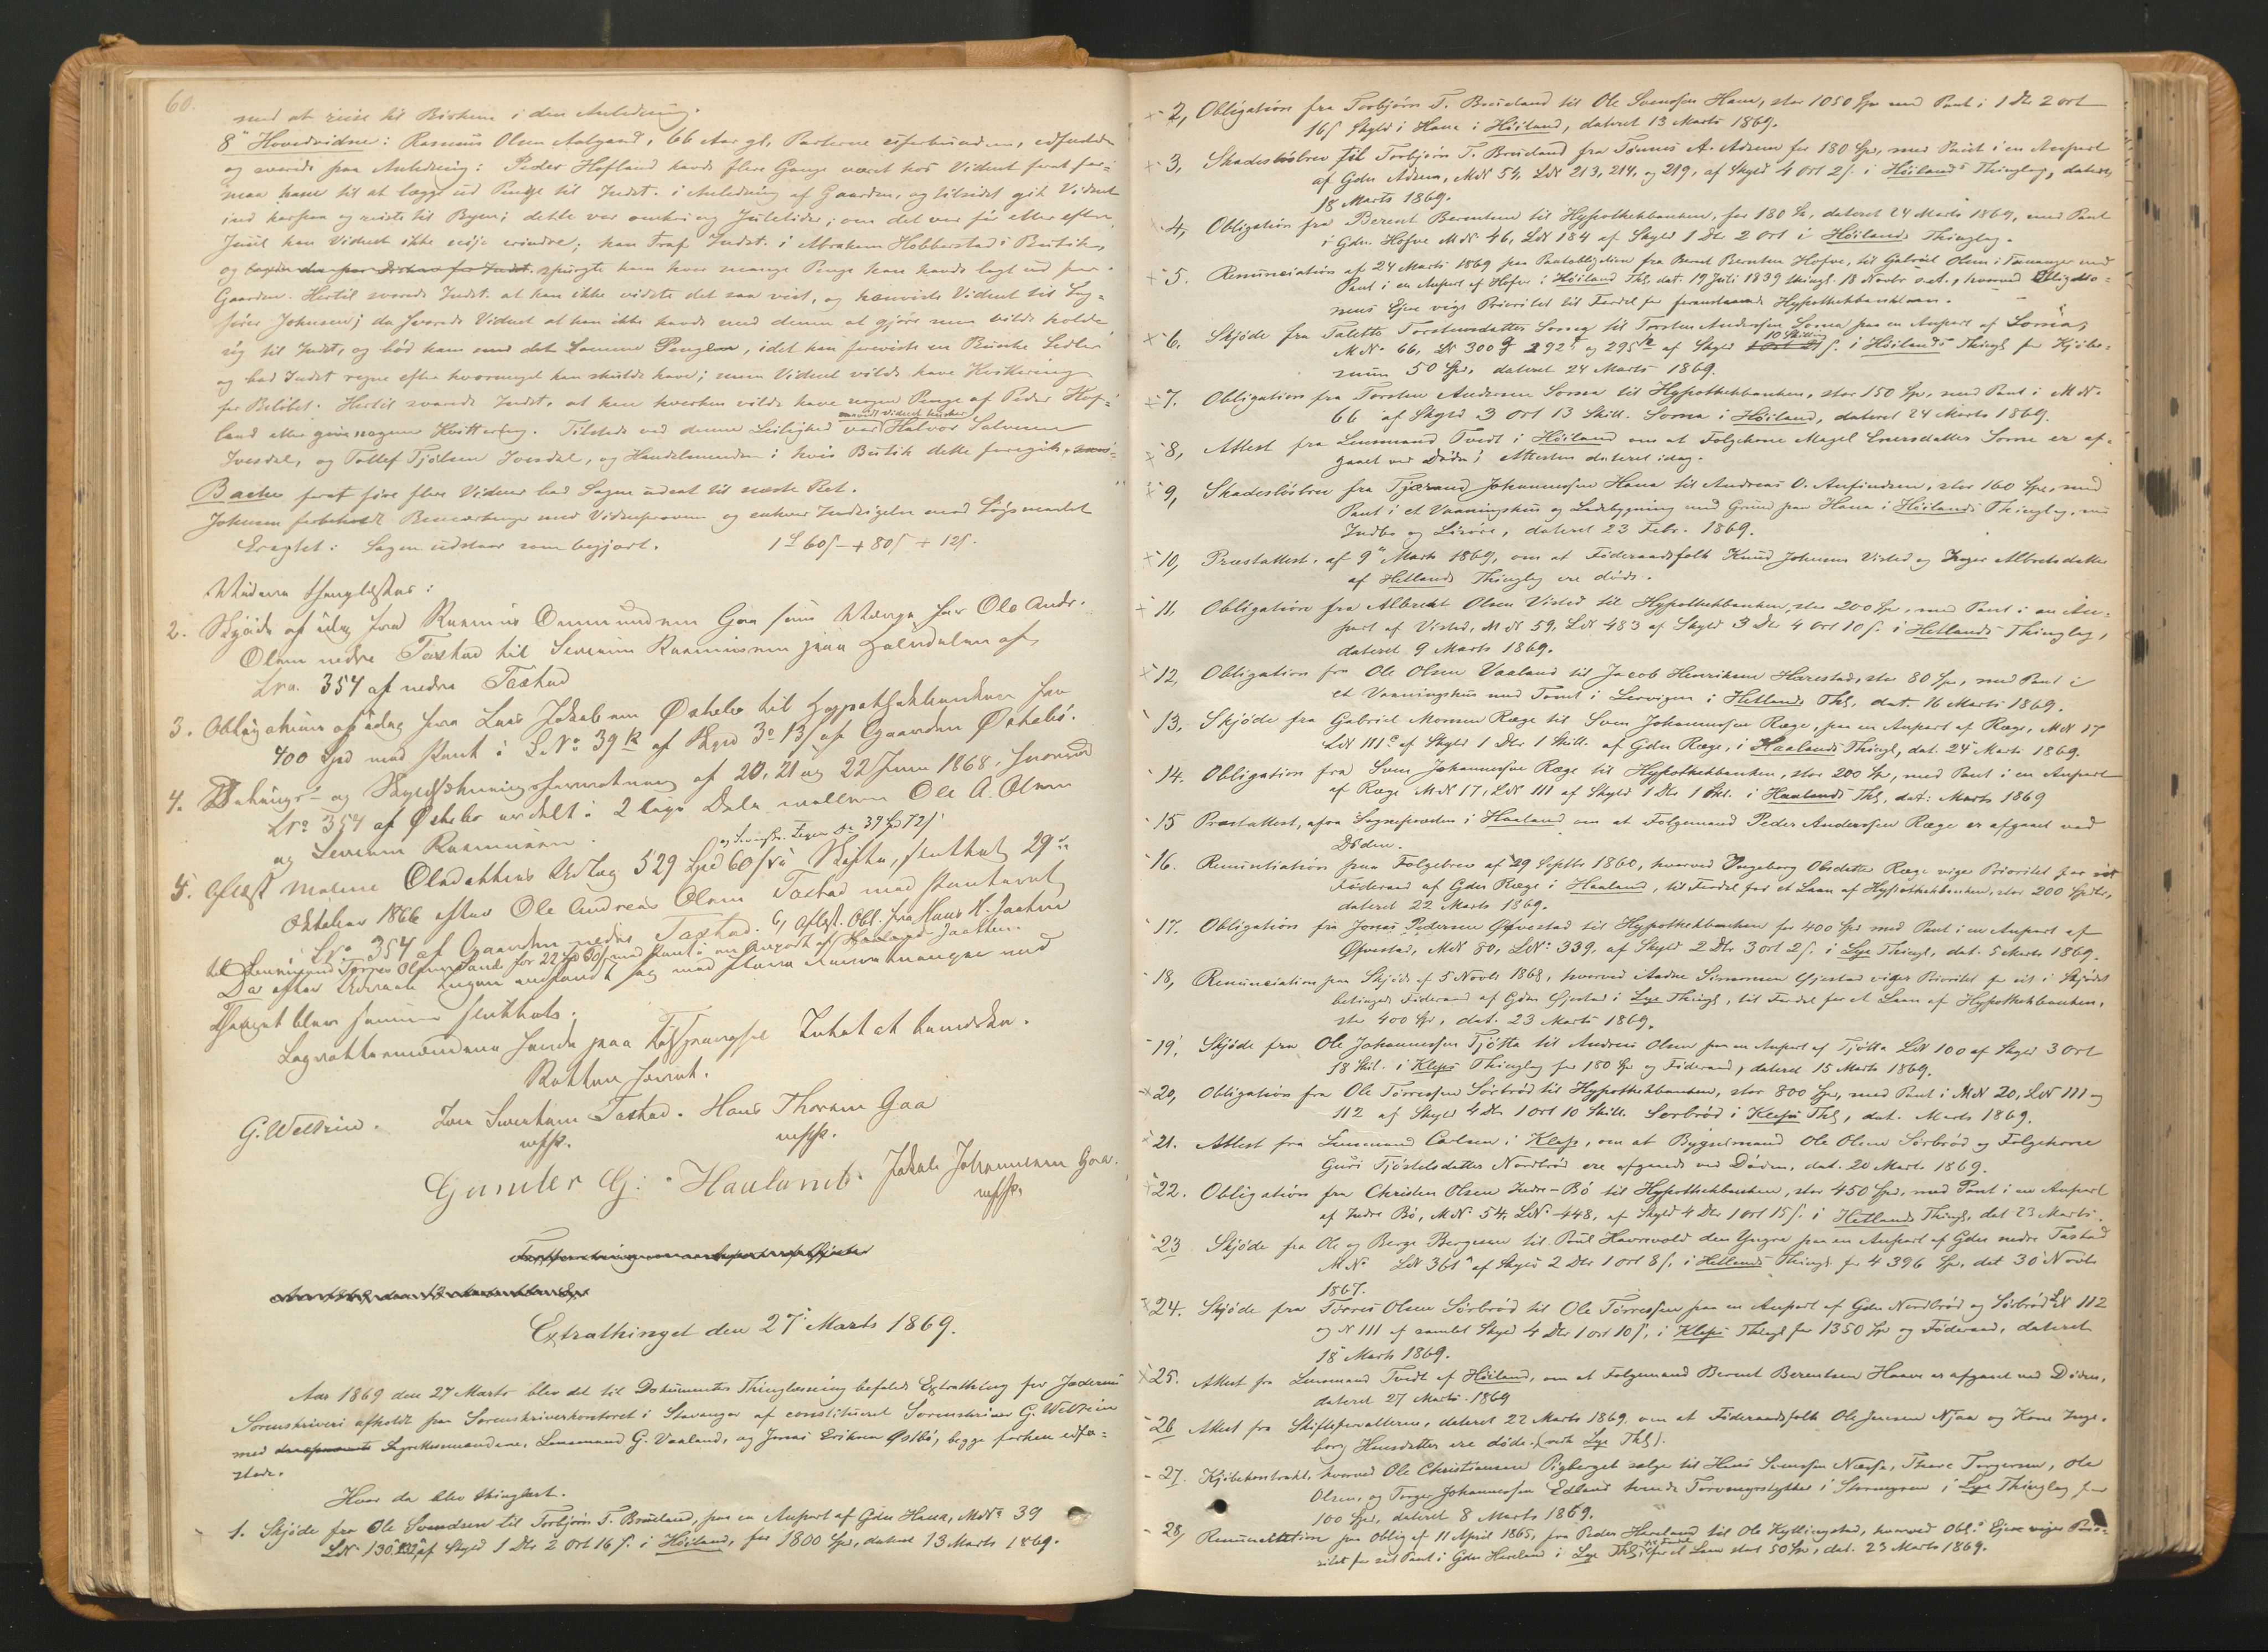 60.
med at reise til Birkene i den Anledning.
8de Hovedvidne: Rasmus Olsen Aalgaard, 66 Aar gl., Parterne ubeslægtet, edfæstet
og svarede paa Anledning: Peder Hofland havde flere Gange været hos Vidnet forat for-
maa ham til at lægge ud Penge til Indst. i Anledning af Gaarden, og tilsidst gik Vidnet
ind herpaa og reiste til Byen; dette var omkring Juletider; om det var før eller efter
Juul kan Vidnet ikke nøje erindre; han traf Indst. i Abraham Hobberstads Butik,
og spurgte ham hvor mange Penge han havde lagt ud paa
Gaarden. Hertil svarede Indst. at han ikke vidste det saa vist, og henviste Vidnet til Sag-
fører Johnsen; da svarede Vidnet at han ikke havde med denne at gjøre men vilde holde
sig til Indst., og bød ham med det samme Pengene, idet han foreviste en Bunke Sedler
og bad Indst. regne efter hvormeget han skulde have; men Vidnet vilde have Kvittering
for Beløbet. Hertil svarede Indst., at han hverken vilde have nogen Penge af Peder Hof-
land eller give nogen Kvittering. Tilstede ved denne Leilighed var saavidt Vidnet husker Halvor Salvesen
Ivesdal, og Tollef Tjølsen Ivesdal, og Handelsmanden i hvis Butik dette foregik.
Bache forat føre flere Vidner bad Sagen udsat til næste Ret.
Johnsen forbeholdt Bemærkninger med Vidneprovene og enhver Indsigelse mod Søgsmaalet
Eragtet: Sagen udstaar som begjært. 1 S 60 s + 80 s + 12 s.
Videre thinglæstes:
2. Skjøde af idag fra Rasmus Ommundsen Goa som Værge for Ole Andr.
Olsen nedre Tastad til Severin Rasmussen paa Halvdelen af
Lno. 354 af nedre Tastad
3. Obligation af idag fra Lars Jakobsen Østebø til Hypothekbanken for
400 Spd med Pant i LNo 39 k af Skyld 3 o 13 s af Gaarden Østebø.
4. Delings- og Skyldsætningsforretning af 20, 21 og 22 Juni 1868, hvorved
Lno 354 af Østebø er delt i 2 lige Dele mellem Ole A. Olsen
og Severin Rasmussen.
5. Aflæst Malene Olsdatters Udlæg 529 Spd 60 s i Skifte, sluttet 29de
og 39 Sp 72 s
Oktober 1866 efter Ole Andreas Olsen Tastad med Panteret
i Lno. 354 af Gaarden nedre Tastad. 6, Aflæst. Obl. fra Hans H. Jaatten
til Torres Olsen Sande for 22 Sp 60 s med Pant i en Anpart af Jaatten.
Da efter Udraab Ingen indfandt sig med flere Forretninger ved
Thinget blev samme sluttet.
Lagrettesmændene havde paa Tilspørgsel Intet at bemærke.
Retten hævet.
G. Weltzin. Iver Svendsen Tastad. Hans Thorsen Goa
Gunder G. Hauland. Jakob Johannessen Goa.
Extrathinget den 27de Marts 1869.
Aar 1869 den 27 Marts blev det til Dokumenters Thinglæsning befalede Extrathing for Jæderens
Sorenskriveri afholdt paa Sorenskriverkontoret i Stavanger af constitueret Sorenskriver G. Weltzin
med Lagrettesmændene, Lensmand G. Vaaland, og Jonas Eriksen Østbø, begge forhen edfæ-
stede.
Hvor da blev thinglæst.
1. Skjøde fra Ole Svendsen til Torbjørn T. Brueland, paa en Anpart af Gdn Hana, MNo 39
LNo 130, af Skyld 1 Dlr 2 Ort 16 s. i Høiland, for 1800 Spd, dateret 13 Marts 1869.
2, Obligation fra Torbjørn T. Brueland til Ole Svendsen Hana, stor 1050 Spd med Pant i 1 Dlr 2 Ort
16 s Skyld i Hana i Høiland, dateret 13 Marts 1869.
3, Skadesløsbrev til Torbjørn T. Brueland fra Tønnes A. Adsen for 180 Spd, med Pant i en Anpart
af Gdn Adsen, MN 54, LN 213, 214, og 219, af Skyld 4 Ort 2 s. i Høilands Thinglag, dateret
18 Marts 1869.
4, Obligation fra Berent Berentsen til Hypothekbanken, for 180 Sp, dateret 24 Marts 1869, med Pant
i Gdn. Hofve MN 46, LN 184 af Skyld 1 Dlr 2 Ort i Høilands Thinglag.
5. Renunciation af 24 Marts 1869 paa Pantobligation fra Bernt Berntsen Hofve, til Gabriel Olsen i Tananger med
Pant i en Anpart af Hofve i Høiland Thl, dat. 19 Juli 1839 thingl. 18 Novbr s.A., hvorved Obligatio-
nens Ejer viger Prioritet til Fordel for foranstaaende Hypothekbanklaan.
6. Skjøde fra Talette Torstensdatter Somma til Torsten Andersen Somma paa en Anpart af Somma,
MNo 66, LN 300 g 292 f og 295 k af Skyld 10 Skilling i Høilands Thingl for Kjøbe-
sum 50 Spd, dateret 24 Marts 1869.
7. Obligation fra Torsten Andersen Somma til Hypothekbanken, stor 150 Spd, med Pant i MN
66 af Skyld 3 Ort 13 Skill. Somma i Høiland, dateret 24 Marts 1869.
8, Attest fra Lensmand Tvedt i Høiland om at Folgekone Magel Enersdatter Somme er af-
gaaet ved Døden; Attesten dateret idag.
9, Skadesløsbrev fra Tjerand Johannessen Hana til Andreas O. Anfindsen, stor 160 Spd, med
Pant i et Vaaningshus og Ladebygning med Grund paa Hana i Høilands Thinglag, med
Indbo og Løsøre, dateret 23 Febr. 1869.
10, Præsteattest, af 9de Marts 1869, om at Føderaadsfolk Knud Johnsen Visted og Inger Albretsdatter
af Hetlands Thinglag ere døde.
11. Obligation fra Albrecht Olsen Visted til Hypothekbanken, stor 200 Spd, med Pant i en An-
part af Visted, MN 59, LN 483 af Skyld 3 Dlr 4 Ort 10 s. i Hetlands Thinglag,
dateret 9 Marts 1869.
12, Obligation fra Ole Olsen Vaaland til Jacob Henriksen Harestad, stor 80 Spd, med Pant i
et Vaaningshus med Tomt i Lervigen i Hetlands Thl, dat. 16 Marts 1869.
13. Skjøde fra Gabriel Monsen Ræge til Sven Johannessen Ræge, paa en Anpart af Ræge, MN 17
LN 111 c af Skyld 1 Dlr 1 Skill. af Gdn Ræge, i Haalands Thingl, dat. 24 Marts 1869.
14. Obligation fra Sven Johannessen Ræge til Hypothekbanken, stor 200 Sp, med Pant i en Anpart
af Ræge MN 17, LN 111 af Skyld 1 Dlr 1 Skl. i Haalands Thl, dat: Marts 1869
15 Præsteattest, fra Sognepræsten i Haaland om at Folgemand Peder Andersen Ræge er afgaaet ved
Døden.
16. Renuntiation paa Folgebrev af 29 Septbr 1860, hvorved Ingeborg Olsdatter Ræge viger Prioritet for sit
Føderaad af Gdn Ræge i Haaland, til Fordel for et Laan af Hypothekbanken, stor 200 Spdlr,
dateret 22 Marts 1869.
17. Obligation fra Jonas Pedersen Øfvestad til Hypothekbanken for 400 Spd med Pant i en Anpart af
Øfvestad, MN 80, LNo: 339, af Skyld 2 Dlr 3 Ort 2 s. i Lye Thingl, dat. 5 Marts 1869.
18, Renunciation paa Skjøde af 5 Novbr 1868, hvorved Andrea Simonsen Gjestad viger Prioritet for sit i Skjødet
betingede Føderaad af Gdn Gjestad i Lye Thingl, til Fordel for et Laan af Hypothekbanken,
stor 400 Spd, dat. 23 Marts 1869.
19, Skjøde fra Ole Johannessen Tjøtta til Andreas Olsen paa en Anpart af Tjøtta LN 100 af Skyld 3 Ort
18 Skil. i Kleps Thinglag for 180 Spd og Føderaad, dateret 15 Marts 1869.
20, Obligation fra Ole Torressen Sørbrød til Hypothekbanken, stor 800 Spd, med Pant i MN 20, LN 111 og
112 af Skyld 4 Dlr 1 Ort 10 Skill. Sørbrød i Kleps Thl, dat. Marts 1869.
21. Attest fra Lensmand Carlsen i Klep, om at Bygselmand Ole Olsen Sørbrød og Folgekone
Guri Tjøstelsdatter Nordbrød ere afgaaede ved Døden, dat. 20 Marts 1869.
22. Obligation fra Christen Olsen Indre-Bø til Hypothekbanken, stor 450 Spd, med Pant i en Anpart
af Indre Bø, MNo 54, LNo 448, af Skyld 4 Dlr 1 Ort 15 s. i Hetlands Thingl, dat 23 Marts.
23 Skjøde fra Ole og Berge Bergesen til Poul Havrevold den Yngre paa en Anpart af Gdn nedre Tastad
MNo LN 361 a af Skyld 2 Dlr 1 Ort 8 s, i Hetlands Thingl. for 4396 Spd, dat 30 Novbr
1867.
24. Skjøde fra Torres Olsen Sørbrød til Ole Torressen paa en Anpart af Gdn Nordbrød og Sørbrød LN 112
og N 111 af samlet Skyld 4 Dlr 1 Ort 10 s, i Kleps Thingl for 1350 Sp og Føderaad, dateret
18 Marts 1869.
25. Attest fra Lensmand Tvedt af Høiland, om at Folgemand Berent Berentsen Haave er afgaaet ved Døden,
dateret 27 Marts 1869
26 Attest fra Skifteforvalteren, dateret 22 Marts 1869, om at Føderaadsfolk Ole Jensen Njaa og Kone Inge-
borg Hansdatter ere døde. (vedk Lye Thl).
27. Kjøbekontrakt, hvorved Ole Christiansen Rigberget sælger til Hans Svendsen Næse, Thore Torgersen, Ole
Olsen, og Torger Johannessen Edland tvende Torvmyrstykker i Stormyren i Lye Thinglag for
100 Spd, dateret 8 Marts 1869.
28, Renunciation paa Oblig af 11 April 1865, fra Peder Haveland til Ole Kyllingstad, hvorved Obl.s Ejer viger Prio-
ritet for sit Pant i Gdn Haveland i Lye Thl, til Fordel for et Laan stort 50 Sp, dat. 23 Marts 1869.